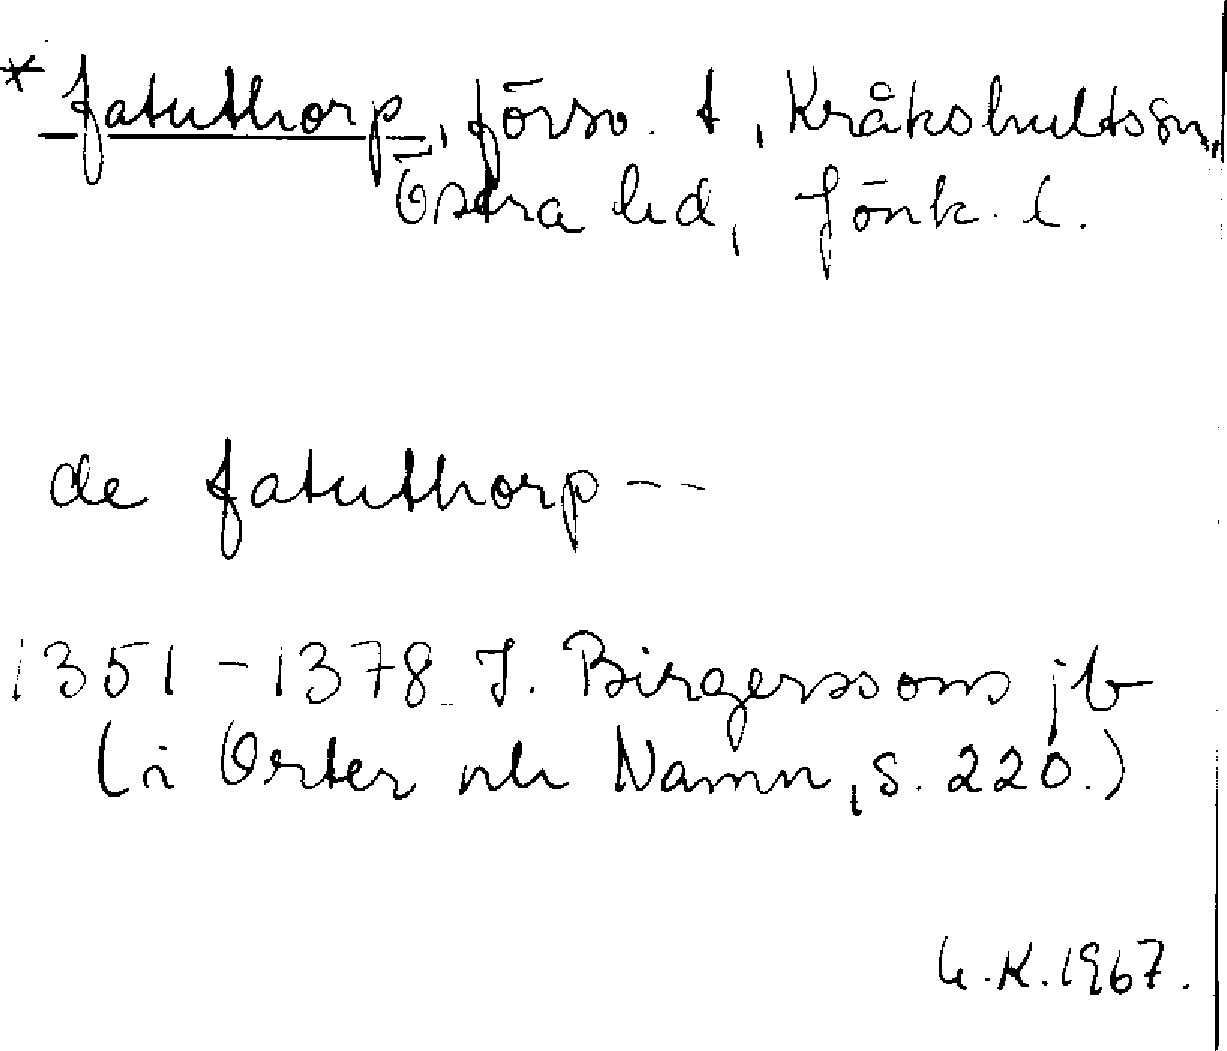 * fatuthorp, försv. t, Kråkshults sn,
Östra hd, Jönk. l.
de fatuthorp --
1351-1378 J. Birgerssons jb
(i Orter och Namn, s. 220.)
K. 1967.